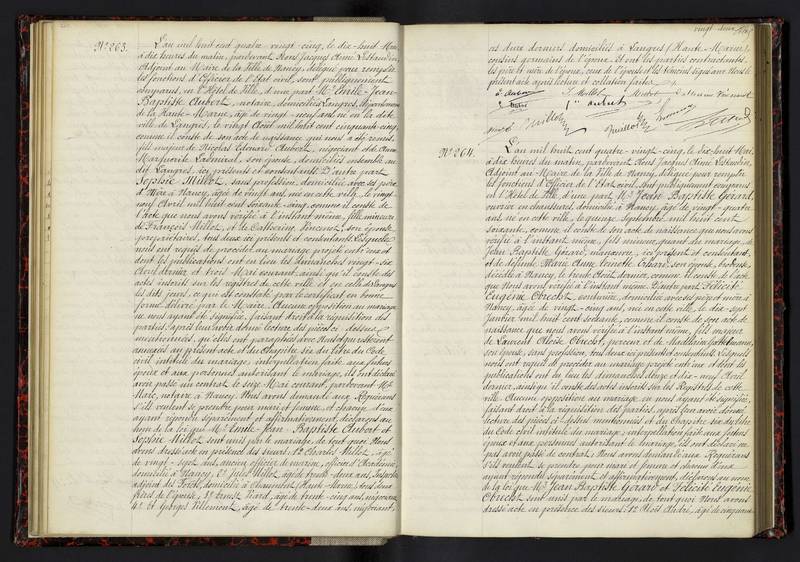 N° 263. L'an mil huit cent quatre-vingt-cinq, le dix-huit Mai,
à dix heures du matin, pardevant Nous Jacques Aimé
Adjoint au Maire de la Ville de Nancy, délégué pour remplir
les fonctions d'Officier de l'Etat civil, sont publiquement
comparus, en l'Hôtel de Ville, d'une part Mr Emile-Jean-
Baptiste Aubert, notaire, domicilié à Langres, département
de la Haute-Marne, âgé de vingt-neuf ans, né en la dite
ville de Langres, le vingt Août mil huit cent cinquante-cinq,
comme il conste de son acte de naissance qui nous a été remis,
fils majeur de Nicolas Edouard Aubert, négociant et de Anne
Marguerite son épouse, domiciliés ensemble au
dit Langres, ici présents et consentants. D'autre part
Sophie Millot, sans profession, domiciliée avec ses père
et Mère à Nancy, âgée de vingt ans, née en cette ville, le vingt-
neuf Avril mil huit cent soixante-cinq, comme il conste de
l'acte que nous avons vérifié à l'instant même, fille mineure
de François Millot, et de Catherine Vincent, son épouse,
propriétaires, tous deux ici présents et consentants. Lesquels
nous ont requis de procéder au mariage projeté entr'eux et
dont les publications ont eu lieu les dimanches vingt-six
Avril dernier et trois Mai courant, ainsi qu'il conste des
actes inscrits sur les registres de cette ville et en celle de Langres
les dits jours, ce qui est constaté par le certificat en bonne
forme délivré par le Maire. Aucune opposition au mariage
ne nous ayant été signifiée, faisant droit à la réquisition des
parties, après leur avoir donné lecture des pièces ci-dessus
mentionnées, qu'elles ont paraphées avec Nous et qui resteront
annexées au présent acte et du Chapitre six du titre du Code
civil intitulé du mariage, interpellation faite aux futurs
époux et aux personnes autorisant le mariage, ils ont déclaré
avoir passé un contrat le seize Mai courant, pardevant Me
notaire à Nancy. Nous avons demandé aux Requérants
s'ils veulent se prendre pour mari et femme, et chacun d'eux
ayant répondu séparément et affirmativement, déclarons au
nom de la loi que Mr Emile-Jean-Baptiste Aubert et
Sophie Millot sont unis par le mariage, de tout quoi Nous
avons dressé acte en présence des sieurs: 1° Charles Millot, âgé
de vingt-sept ans, ancien officier de marine, officier d'Académie,
domicilié à Nancy, 2° Jules Millot, âgé de trente-deux ans, Inspecteur
adjoint des Forêts, domicilié à Chaumont (Haute-Marne), tous deux
frères de l'épouse, 3° Ernest Viard, âgé de trente-cinq ans, négociant,
4° et Georges Villemont, âgé de trente-deux ans, négociant,
vingt-deux
ces deux derniers domiciliés à Langres (Haute-Marne),
cousins germains de l'époux. Et ont les parties contractantes
les père et mère de l'époux, ceux de l'épouse et les témoins signé avec Nous le
présent acte après lecture et collation faites.
S. Millot
Aubert
N° 264. L'an mil huit cent quatre-vingt-cinq, le dix-huit Mai,
à dix heures du matin, pardevant Nous Jacques Aimé
Adjoint au Maire de la Ville de Nancy, délégué pour remplir
les fonctions d'Officier de l'Etat civil, sont publiquement comparus
en l'Hôtel de Ville, d'une part Mr Jean Baptiste Gérard,
ouvrier en chaussures, domicilié à Nancy, âgé de vingt-quatre
ans, né en cette ville, le quinze Septembre mil huit cent
soixante, comme il conste de son acte de naissance que nous avons
vérifié à l'instant même, fils mineur, quant au mariage, de
Jean Baptiste Gérard, manœuvre, ici présent et consentant,
et de défunte Marie Anne son épouse,
décédée à Nancy, le trente Août dernier, comme il conste de l'acte
que Nous avons vérifié à l'instant même. D'autre part Félicité
Eugénie Obrecht, couturière, domiciliée avec ses père et mère à
Nancy, âgée de vingt-cinq ans, née en cette ville, le dix-sept
Janvier mil huit cent soixante, comme il conste de son acte de
naissance que nous avons vérifié à l'instant même, fille majeure
de Laurent Obrecht, et de Madeleine
son épouse, sans profession, tous deux ici présents et consentants. Lesquels
nous ont requis de procéder au mariage projeté entr'eux et dont les
publications ont eu lieu les dimanches douze et dix-neuf Avril
dernier, ainsi qu'il conste des actes inscrits sur les Registres de cette
ville. Aucune opposition au mariage ne nous ayant été signifiée,
faisant droit à la réquisition des parties, après leur avoir donné
lecture des pièces ci-dessus mentionnées et du Chapitre six du titre
du Code civil intitulé du mariage, interpellation faite aux futurs
époux et aux personnes autorisant le mariage, ils ont déclaré ne
pas avoir passé de contrat. Nous avons demandé aux Requérants
s'ils veulent se prendre pour mari et femme et chacun d'eux
ayant répondu séparément et affirmativement, déclarons au nom
de la loi que Mr Jean Baptiste Gérard et Félicité Eugénie
Obrecht sont unis par le mariage, de tout quoi Nous avons
dressé acte en présence des sieurs: 1° âgé de cinquante